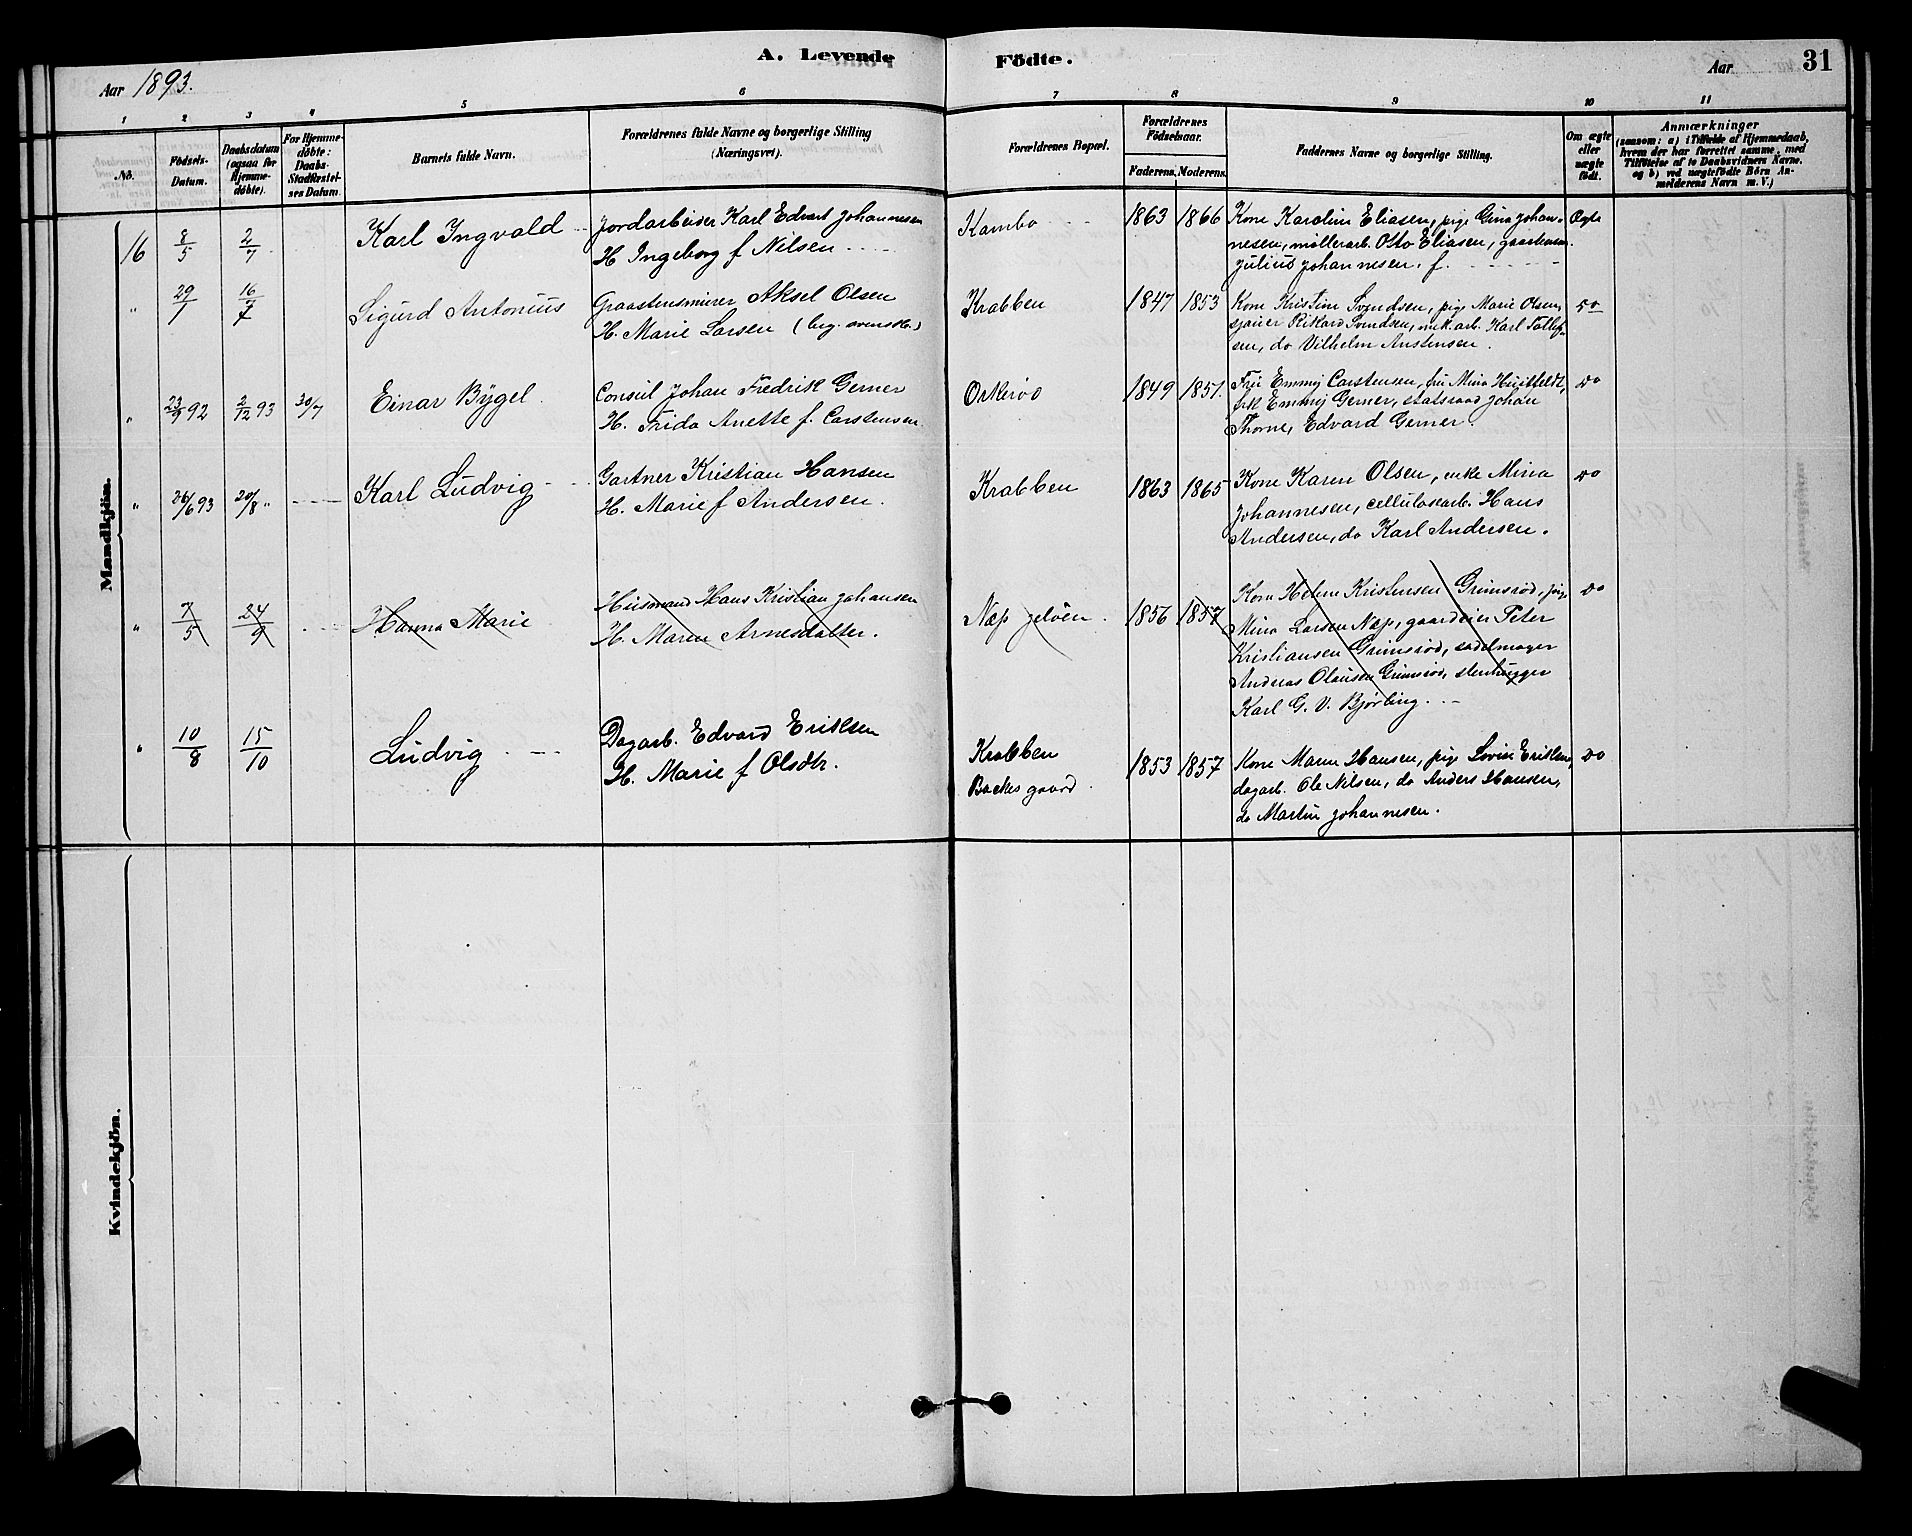 A. Levende Födte.
31
Aar 1893.
Aar
1 2 3 4 5 6 7 8 9 10 11
No.
Födsels-
Datum.
Daabsdatum
(ogsaa for
Hjemme-
döbte).
For Hjemme-
döbte:
Daabs-
Stadfæstel-
ses Datum.
Barnets fulde Navn.
Forældrenes fulde Navne og borgerlige Stilling
(Næringsvei).
Forældrenes Bopæl.
Forældrenes
Födselsaar.
Faderens. Moderens.
Faddernes Navne og borgerlige Stilling.
Om ægte
eller
uægte
födt.
Anmærkninger
(saasom: a) i Tilfælde af Hjemmedaab,
hvem der har forrettet samme, med
Tilföielse af to Daabsvidners Navne.
og b) ved uægtefödte Börn An-
melderens Navn m. V.)
Mandkjön.
16 8/5 2/7 Karl Ingvald
Jordarbeider Karl Edvart Johannesen
H. Ingeborg f Nilsen
Kambo 1863 1866
Kone Karoline Eliasen, pige Gina Johan-
nesen, møllerarb. Otto Eliasen, gaardmm.
Julius Johannesen. f.
Ægte
" 29/1 16/7 Sigurd Antonius
Graastensmurer Aksel Olsen
H. Marie Larsen (beg. svenske)
Krabben 1847 1853
Kone Kristine Svendsen, pige Marie Olsen,
Rikard Svendsen, Karl Tollef-
sen, do Vilhelm Anstensen.
do
" 23/9 92 2/12 93 30/7 Einar Bÿgel.
Consul Johan Fredrik Gerner
H. Frida Anette f. Carstensen.
Orkerød 1849 1851.
Frü Emmy Carstensen, frü Mina Huitfeldt,
frk Emmy Gerner, statsraad Johan
Thorne, Edvard Gerner.
do
" 26/6 93 20/8 " Karl Ludvig
Gartner Kristian Hansen
H. Marie f Andersen.
Krabben 1863 1865
Kone Karen Olsen, enke Mina
Johannesen, cellulosearb. Hans
Andersen, do Karl Andersen.
do
" 7/5 24/9 Hanna Marie
Husmand Hans Kristian Johansen
H. Maren Arnesdatter.
Næp jeløen. 1856 1857
Kone Helene Kristensen Grimsrød, pige
Mina Larsen Næp, gaardeier Peter
Kristiansen Grimsrød, sadelmager
Andreas Olausen Grimsrød, stenhugger
Karl G. V. Bjørling.
do
" 10/8 15/10 Ludvig
Dagarb. Edvard Eriksen
H. Marie f Olsdtr.
Krabben
Backes gaard.
1853 1857
Kone Maren Hansen, pige Lovise Eriksen,
dagarb. Ole Nilsen, do Anders Hansen,
do Martin Johannesen.
do
Kvindekjön.